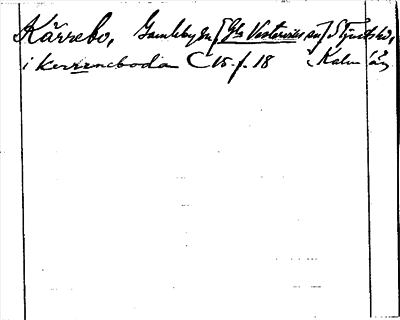 Kärrebo, Gamleby sn [Gla Vestervik sn] S Tjust hd,
i kerrnneboda C 15. f. 18 Kalm län